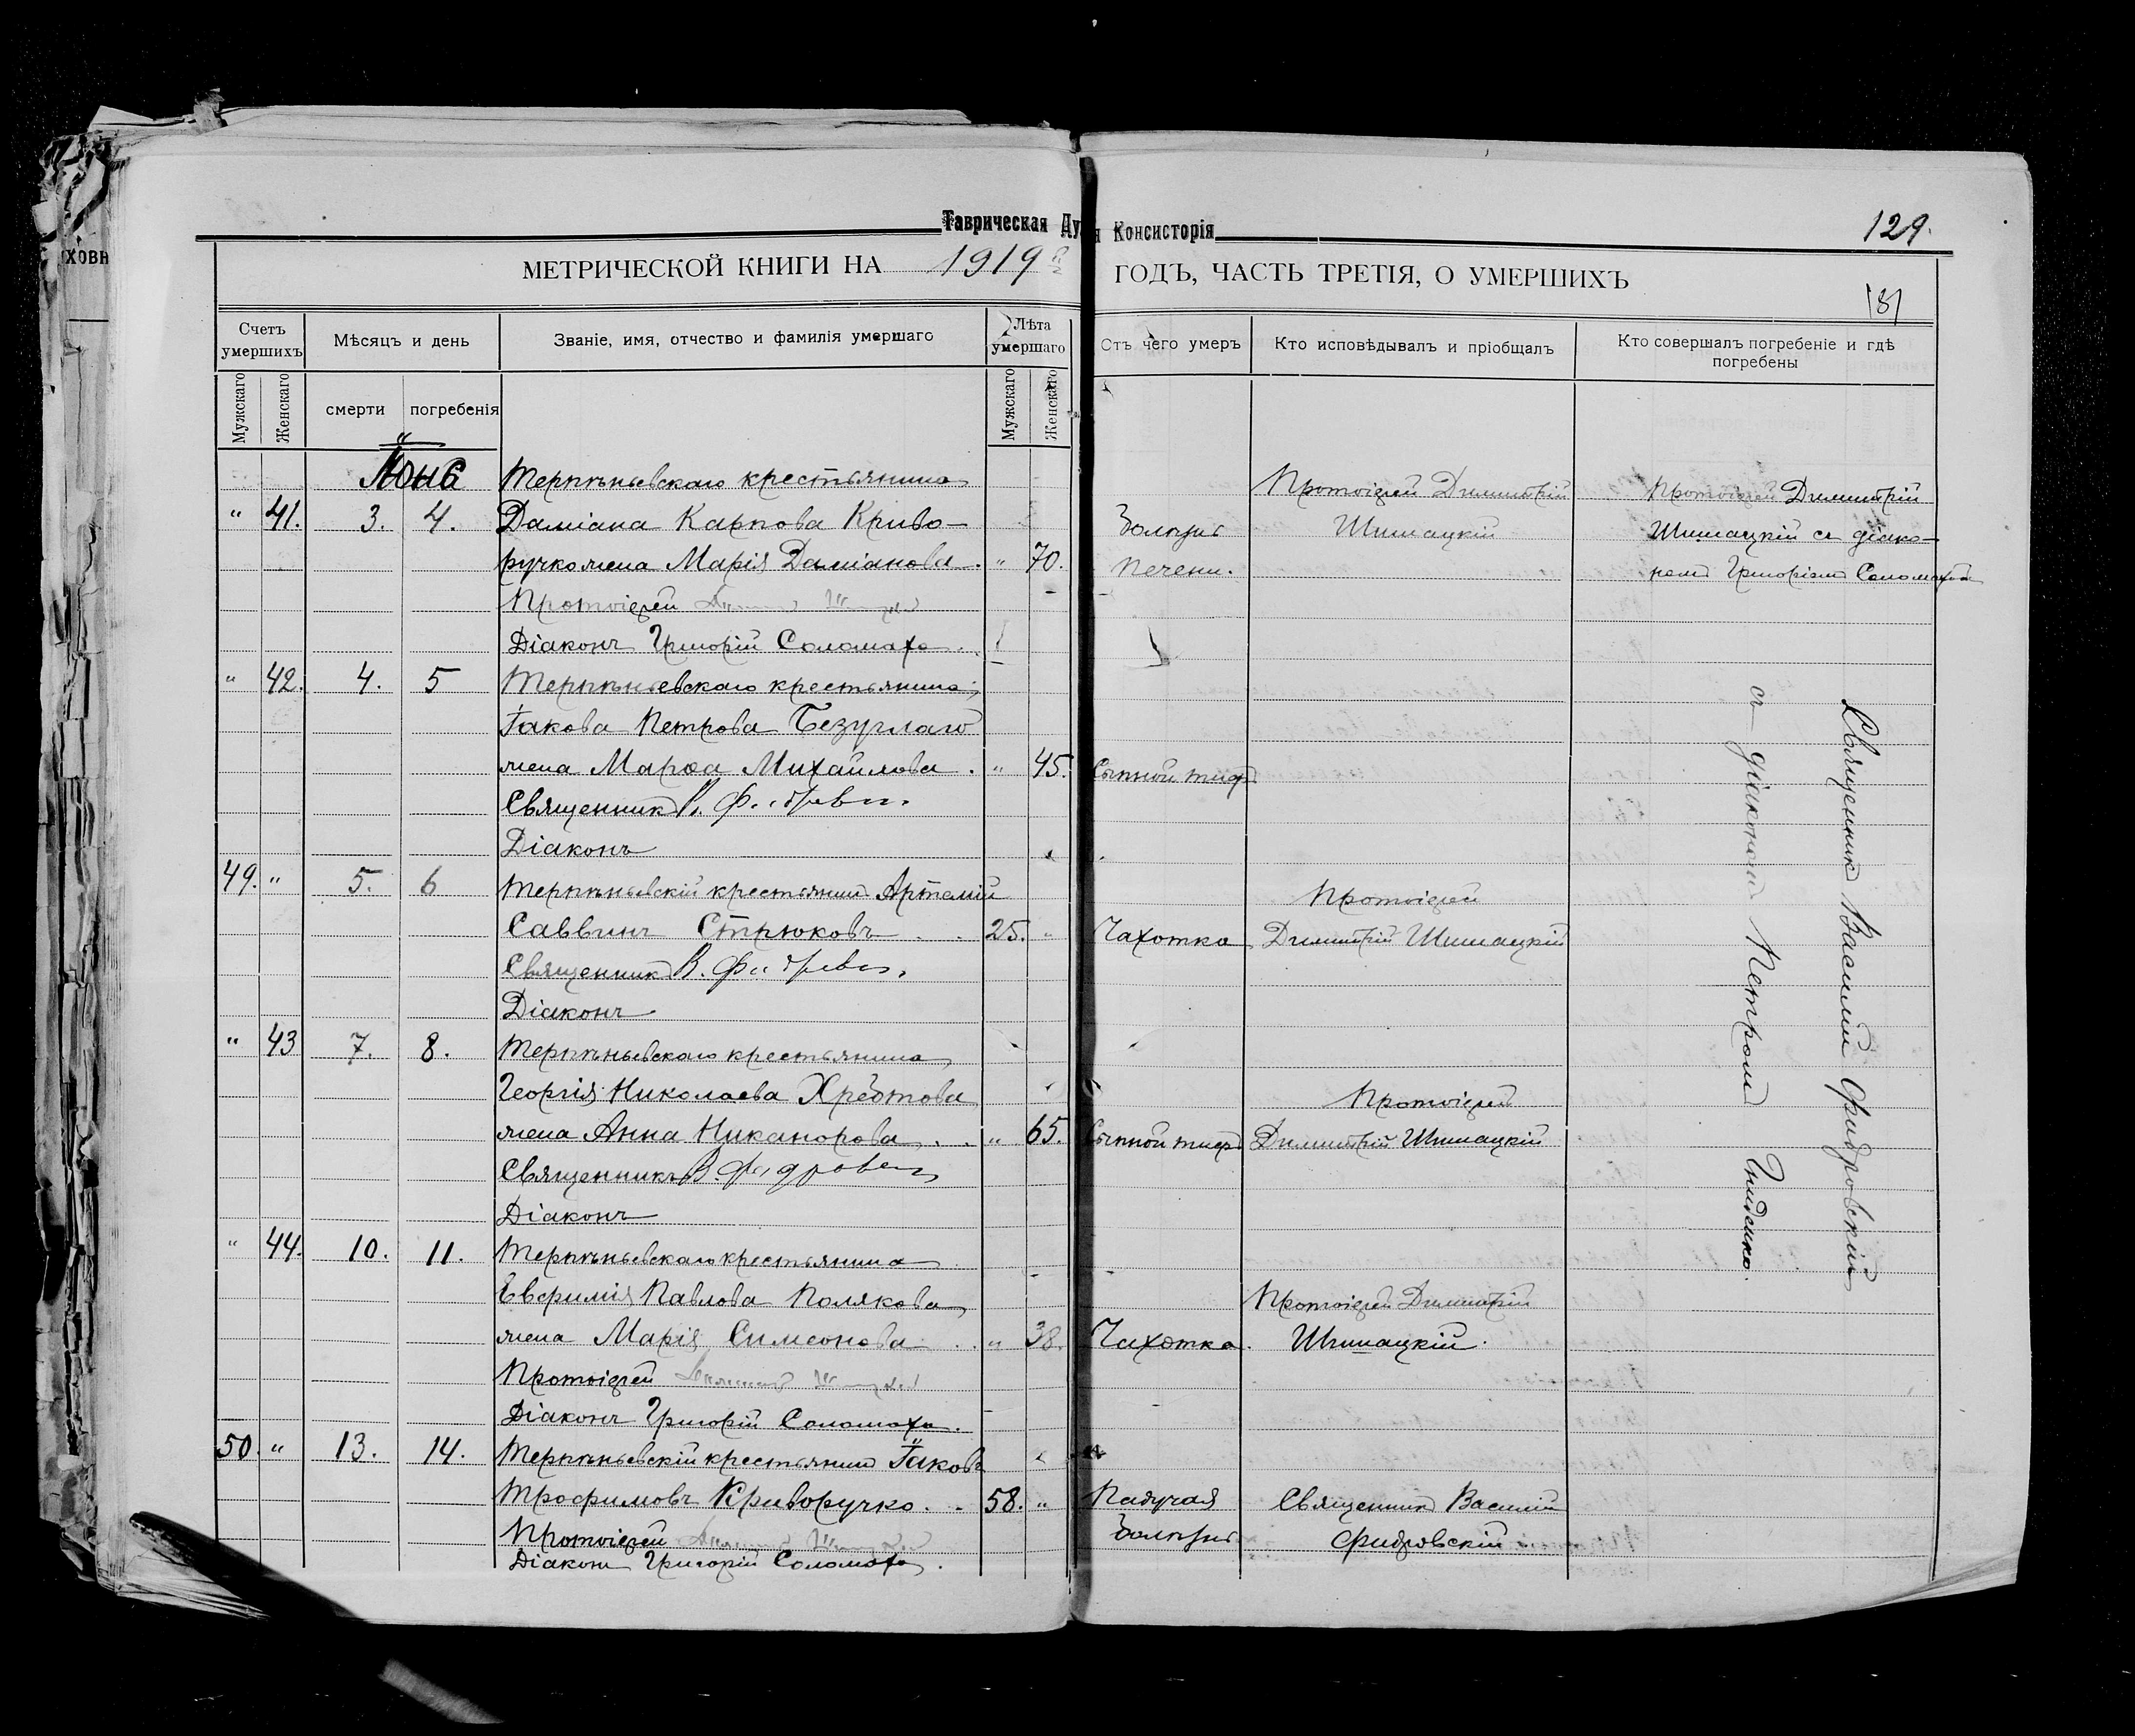 Таврическая Ду
я Консисторія
129.
МЕТРИЧЕСКОЙ КНИГИ НА 1919
ГОДЪ, ЧАСТЬ ТРЕТІЯ, О УМЕРШИХЪ
ХОВН
Счетъ умершихъ
Мѣсяцъ и день
Званіе, имя, отчество и фамилія умершаго
Лѣта умершаго
Отъ чего умеръ
Кто исповѣдывалъ и пріобщалъ
Кто совершалъ погребеніе и гдѣ
погребены
Мужскаго
Женскаго
смерти
погребенія
Мужскаго
Женскаго
Терпѣньевскаго крестьянина
Протоіерей Димитрій
Протоіерей Димитрій
" 41. 3. 4. Даміана Карпова Криво-
Болѣзнь
Шимацкій
Шимацкій съ діако-
ручко жена Марія Даміанова. " 70.
печени.
номъ Григоріемъ Соломахой
Протоіерей
Діаконъ Григорій Соломаха.
" 42. 4. 5 Терпѣньевскаго крестьянина
Іакова Петрова Безуглаго
жена Марѳа Михайлова. " 45. Сыпной тифъ
Священникъ В.
Діаконъ
49. " 5. 6 Терпѣньевскій крестьянинъ Артемій
Протоіерей
Саввинъ Стрюковъ 25. " Чахотка Димитрій Шимацкій
Священникъ В.
Діаконъ
" 43 7. 8. Терпѣньевскаго крестьянина
Георгія Николаева Хребтова
Протоіерей
жена Анна Никанорова " 65. Сыпной тифъ Димитрій Шимацкій
Священникъ В.
Діаконъ
" 44. 10. 11. Терпѣньевскаго крестьянина
Евфимія Павлова Полякова
Протоіерей Димитрій
жена Марія Симеонова " 38. Чахотка. Шимацкій.
Протоіерей
Діаконъ Григорій Соломаха.
50. " 13. 14. Терпѣньевскій крестьянинъ Іаковъ
Трофимовъ Криворучко. 58. " Падучая Священникъ Василій
Протоіерей
болѣзнь
Фидровскій
Діаконъ Григорій Соломаха.
Священникъ Василій Фидровскій
съ діакономъ Петромъ